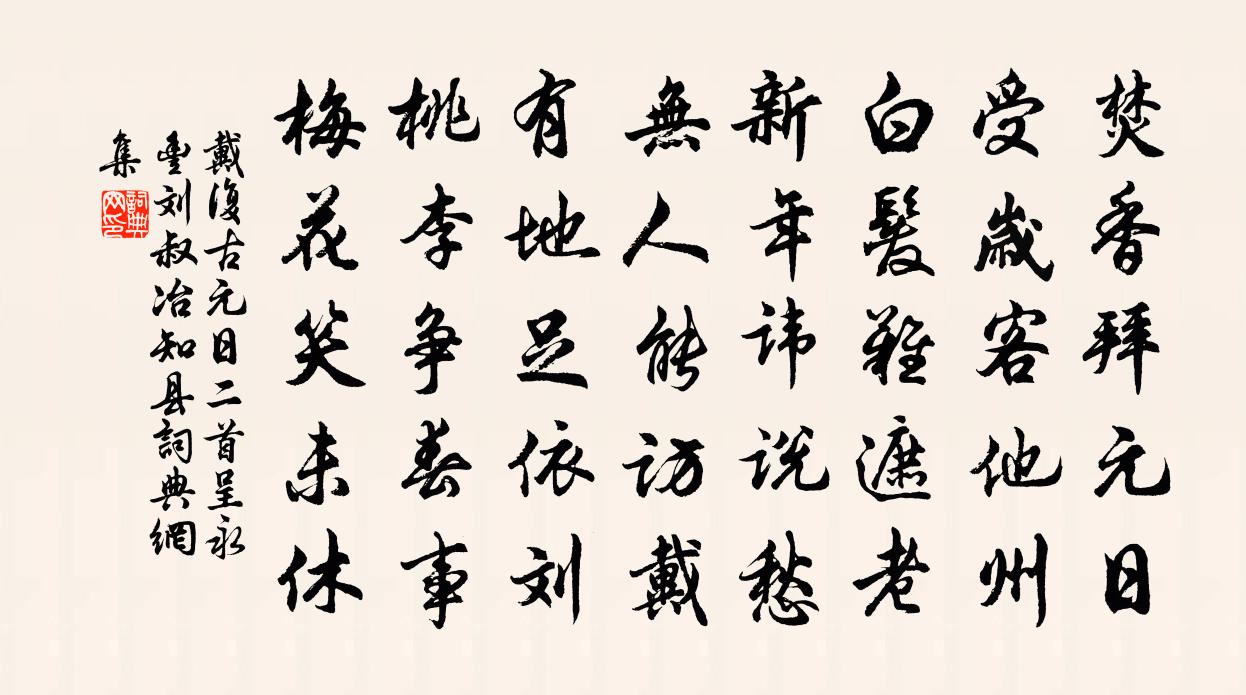 焚香拜元日
受歲客他州
白髮難遮老
新年讳说愁
無人能访戴
有地足依刘
桃李爭春事
梅花笑未休
戴復古元日二首呈永
豊刘叔冶知县詞典網
集
詞典
网印